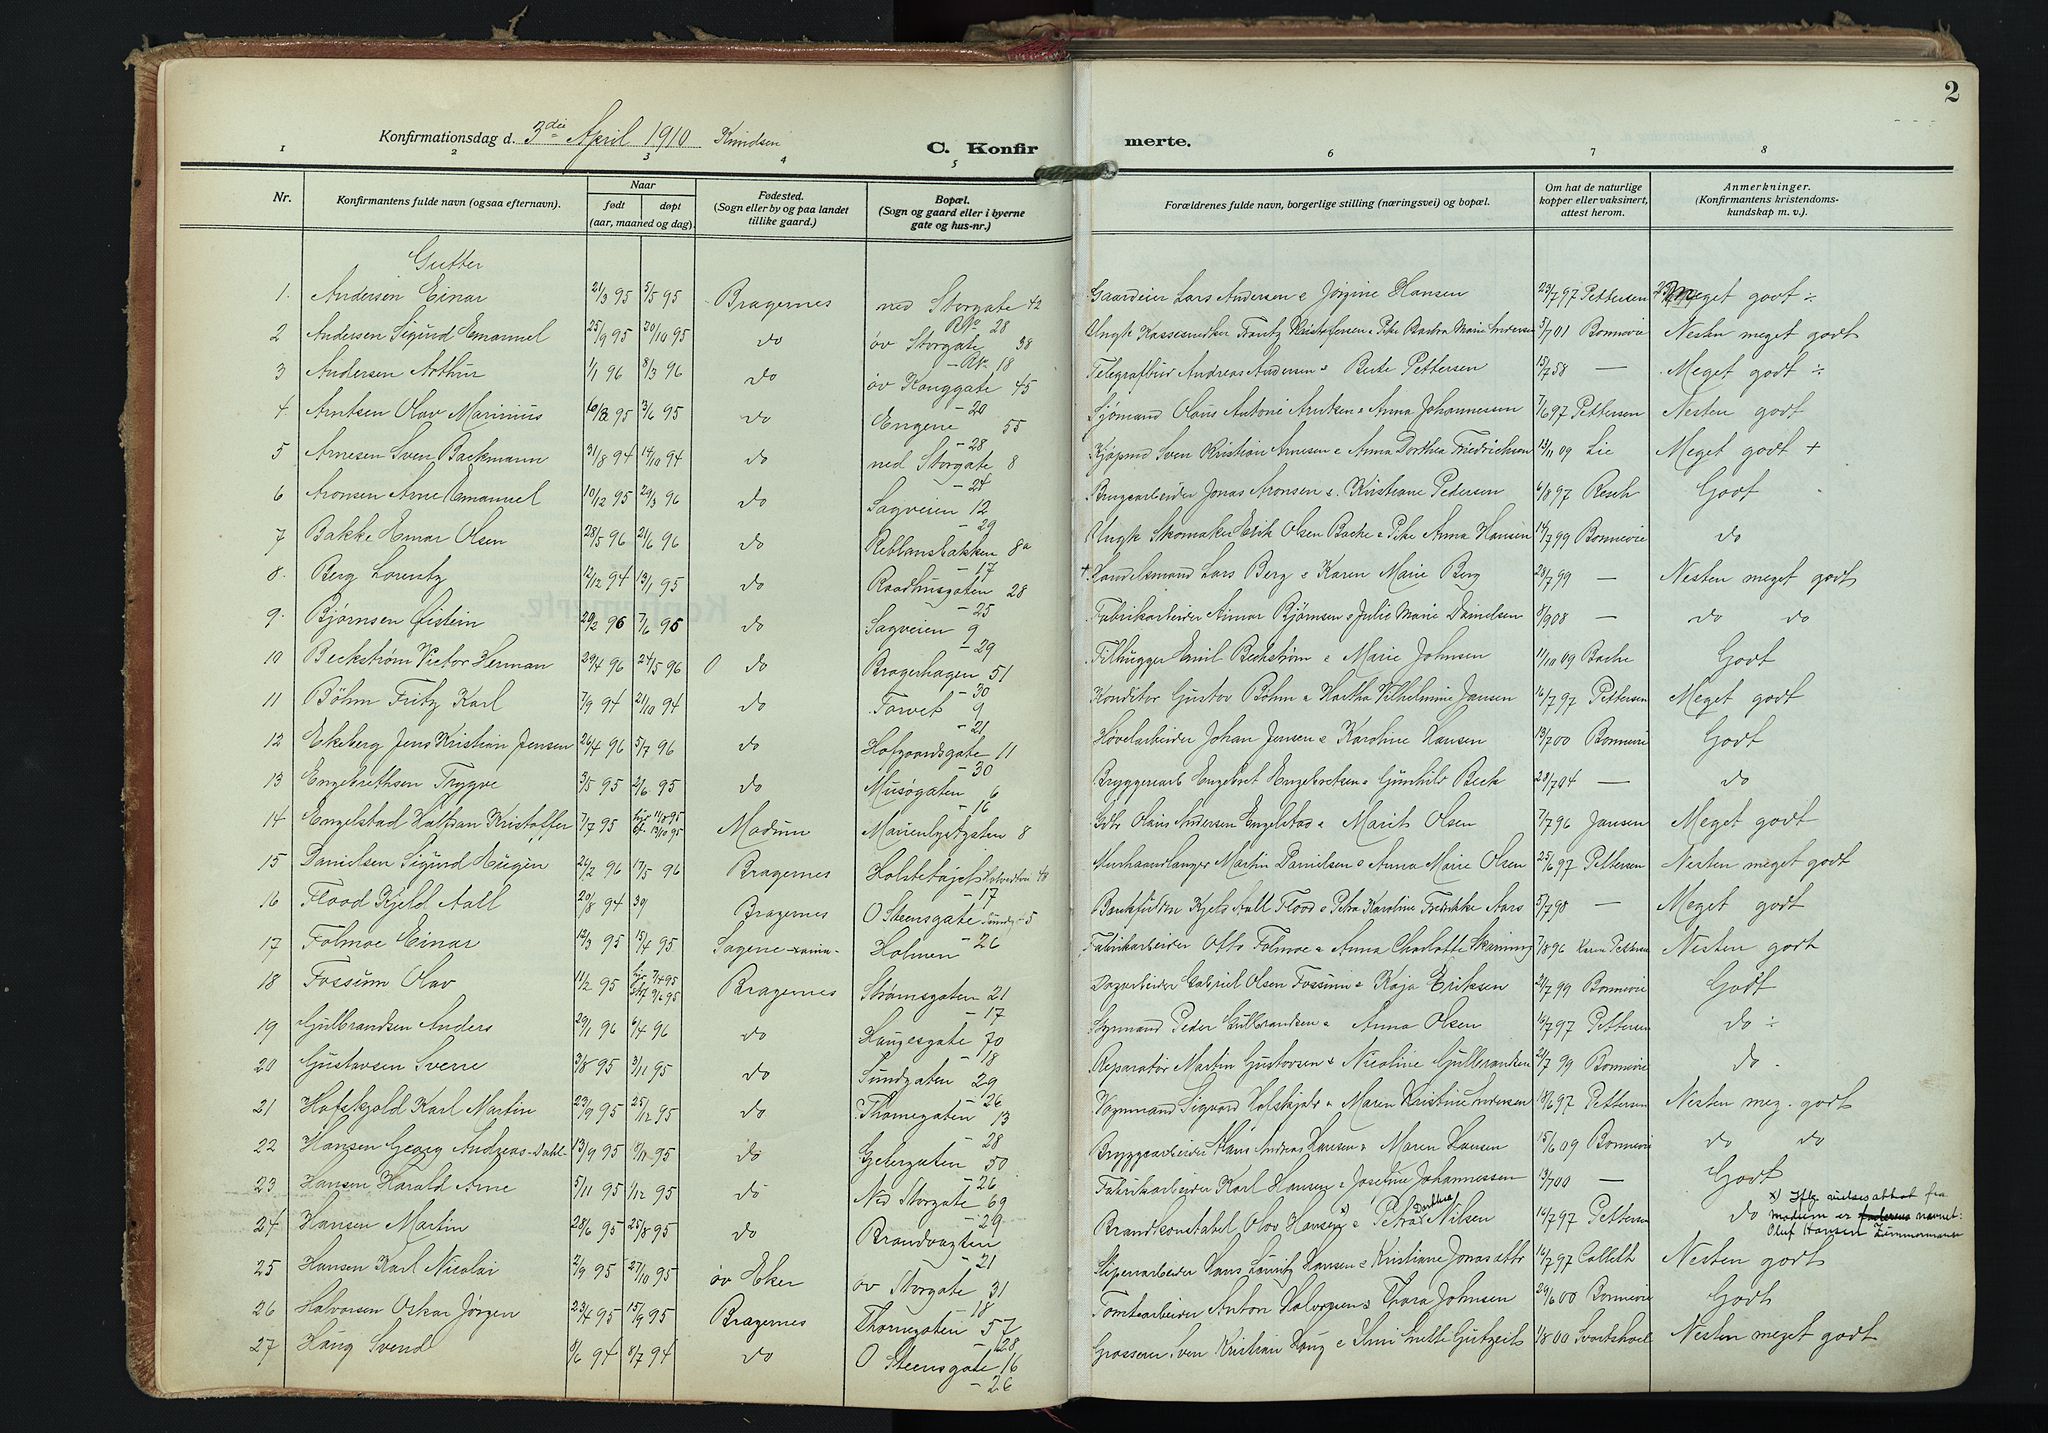 2
Konfirmationsdag d. 3die April 1910 Knudsen
C. Konfirmerte.
1 2 3 4 5 6 7 8
Nr. Konfirmantens fulde navn (ogsaa efternavn). Naar født døpt (aar, maaned og dag). Fødested. (Sogn eller by og paa landet tillike gaard.) Bopæl. (Sogn og gaard eller i byerne gate og hus-nr.) Forældrenes fulde navn, borgerlige stilling (næringsvei) og bopæl. Om hat de naturlige kopper eller vaksinert, attest herom. Anmerkninger. (Konfirmantens kristendomskundskap m. v.).
Gutter
1. Andersen Einar 21/3 95 5/5 95 Bragernes ned Storgate 42 Gaardeier Lars Andersen e Jørgine Hansen 23/7 97 Pettersen Meget godt ÷
2 Andersen Sigurd Emanuel 25/9 95 20/10 95 do øv Storgate 38 5/7 01 Bonnevie Nesten meget godt
3 Andersen Arthur 1/1 96 8/3 96 do øv Konggate 45 Andreas Andersen e Berte Pettersen 15/7 58 — Meget godt ÷
4 Arntsen Olav Marinius 3/6 95 do Engene 55 Sjømand Olaus Antoni Arntsen e Anna Johannessen 7/6 97 Pettersen Nesten godt
5 Arnesen Sven Backmann 31/8 94 14/10 94 do ned Storgate 8 Kjøpmd Sven Kristian Arnesen e Anna Dorthea Friedrichsen 13/11 09 Lie Meget godt +
6 Aronsen Arne Emanuel 10/12 95 29/3 96 do Sagveien 12 Brugsarbeider Jonas Aronsen e Kristiane Pedersen 6/8 97 Resch Godt
7 Bakke Einar Olsen 28/5 96 21/6 96 do 8a Ungk Skomaker Erik Olsen Bache e Pike Anna Hansen 14/7 99 Bonnevie do
8. Berg Lorentz 12/12 94 13/1 95 do Raadhusgaten 28 Handelsmand Lars Berg e Karen Marie Berg 28/7 99 — Nesten meget godt
9. Bjørnsen Øistein 7/6 95 do Sagveien 9 Fabrikarbeider Bjørnsen e Julie Marie Danielsen 8/9 08 — do do
10 Beckstrøm Victor Herman 29/4 96 24/5 96 do Bragerhagen 51 Filhugger Emil Beckstrøm e Marie Johnsen 11/10 09 Bache Godt
11 Böhm Fritz Karl 7/9 94 21/10 94 do Torvet 9 Konditor Gustav Böhm e Martha Vilhelmine Jansen 16/7 97 Pettersen Meget godt
12 Ekeberg Jens Kristian Jensen 26/4 96 5/7 96 do Hofgaardsgate 11 Høvelarbeider Johan Jensen e Karoline Hansen 13/7 00 Bonnevie Godt
13 Engebrethsen Trygve 3/5 95 2/6 95 do Musøgaten 6 Bryggeriarb Engebret Engebretsen e Gunhild Beck 28/7 04 — do
14 Engelstad Halfdan Kristoffer 7/7 95 Modum Marienlystgaten 8 Olaus Andersen Engelstad e Marit Olsen 7/7 96 Jansen Meget godt
15 Danielsen Sigurd Eugen 26/2 96 17/5 96 Bragernes Murhaandlanger Martin Danielsen e Anna Marie Olsen 25/6 97 Pettersen Nesten meget godt
16 Flood Kjeld Aall 20/8 94 Bragernes O Steensgate 5 5/7 98 — Meget godt
17 Folmoe Einar 12/3 95 15/4 95 Holmen Fabrikarbeider Otto Folmoe e Anna Charlotte 7/8 96 Karen Pettersen Nesten godt
18 Fossum Olav 11/2 95 Bragernes Strømsgaten 21 Dagarbeider Gabriel Olsen Fossum e Kaja Eriksen 21/7 99 Bonnevie Godt
19 Gulbrandsen Anders 29/1 96 6/4 96 do Haugesgate 70 Peder Gulbrandsen e Anna Olsen 16/7 97 Pettersen do ÷
20 Gustavsen Sverre 3/8 95 3/11 95 do Sundgaten 29 Reparatør Martin Gustavsen e Nicoline Gulbrandsen 21/7 99 Bonnevie do
21 Hafskjold Karl Martin 23/9 95 25/12 95 do Thornegaten 13 Vognmand Sigvard Hafskjold e Maren Kristine Andersen 18/6 97 Pettersen Nesten meg. godt
22 Hansen Georg Andreas Dahl 13/9 95 95 do Gjetergaten 50 Bryggearbeider Hans Andreas Hansen e Maren Hansen 15/6 09 Bonnevie do do
23 Hansen Harald Arne 5/11 95 1/12 95 do Ned Storgate 69 Fabrikarbeider Karl Hansen e Josefine Johannessen 13/7 00 — Godt
24 Hansen Martin 28/6 95 25/8 95 do Brandvagten Brandkonstabel Olav Hansen x) e Petra Dorthea Nilsen 16/7 97 Pettersen do x) Iflg. vielsesattest fra Modum er faderens navnet: Oluf Hansen Zimmermann
25 Hansen Karl Nicolai 2/9 95 27/10 95 øv Eker øv Storgate 31 Sliperiarbeider Hans Lauritz Hansen e Kristiane Jonasdtr 16/7 97 Collett Nesten godt
26 Halvorsen Oskar Jørgen 23/4 95 15/9 95 Bragernes Thornegaten 57 Tomtearbeider Anton Halvorsen e Thora Johnsen 29/6 00 Bonnevie Godt
27 Haug Svend 8/6 94 8/7 94 do O Steensgate 16 Grosserer Sven Kristian Haug e 1/8 00 Nesten meget godt